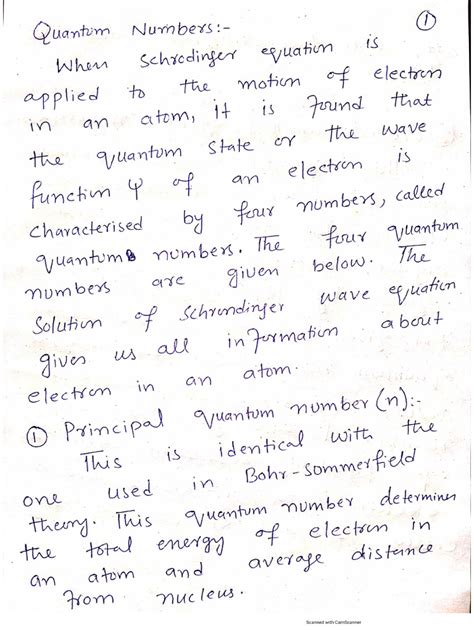 ①
Quantum Numbers:-
When Schrodinger equation is
applied to the motion of electron
in an atom, it is found that
the quantum state or the wave
function ψ of an electron is
characterised by four numbers, called
quantum numbers. The four quantum
numbers are given below. The
Solution of Schrondinger wave equation
gives us all information about
electron in an atom.
① Principal quantum number (n):-
This is identical with the
one used in Bohr-Sommerfield
theory. This quantum number determines
the total energy of electron in
an atom and average distance
from nucleus.
Scanned with CamScanner